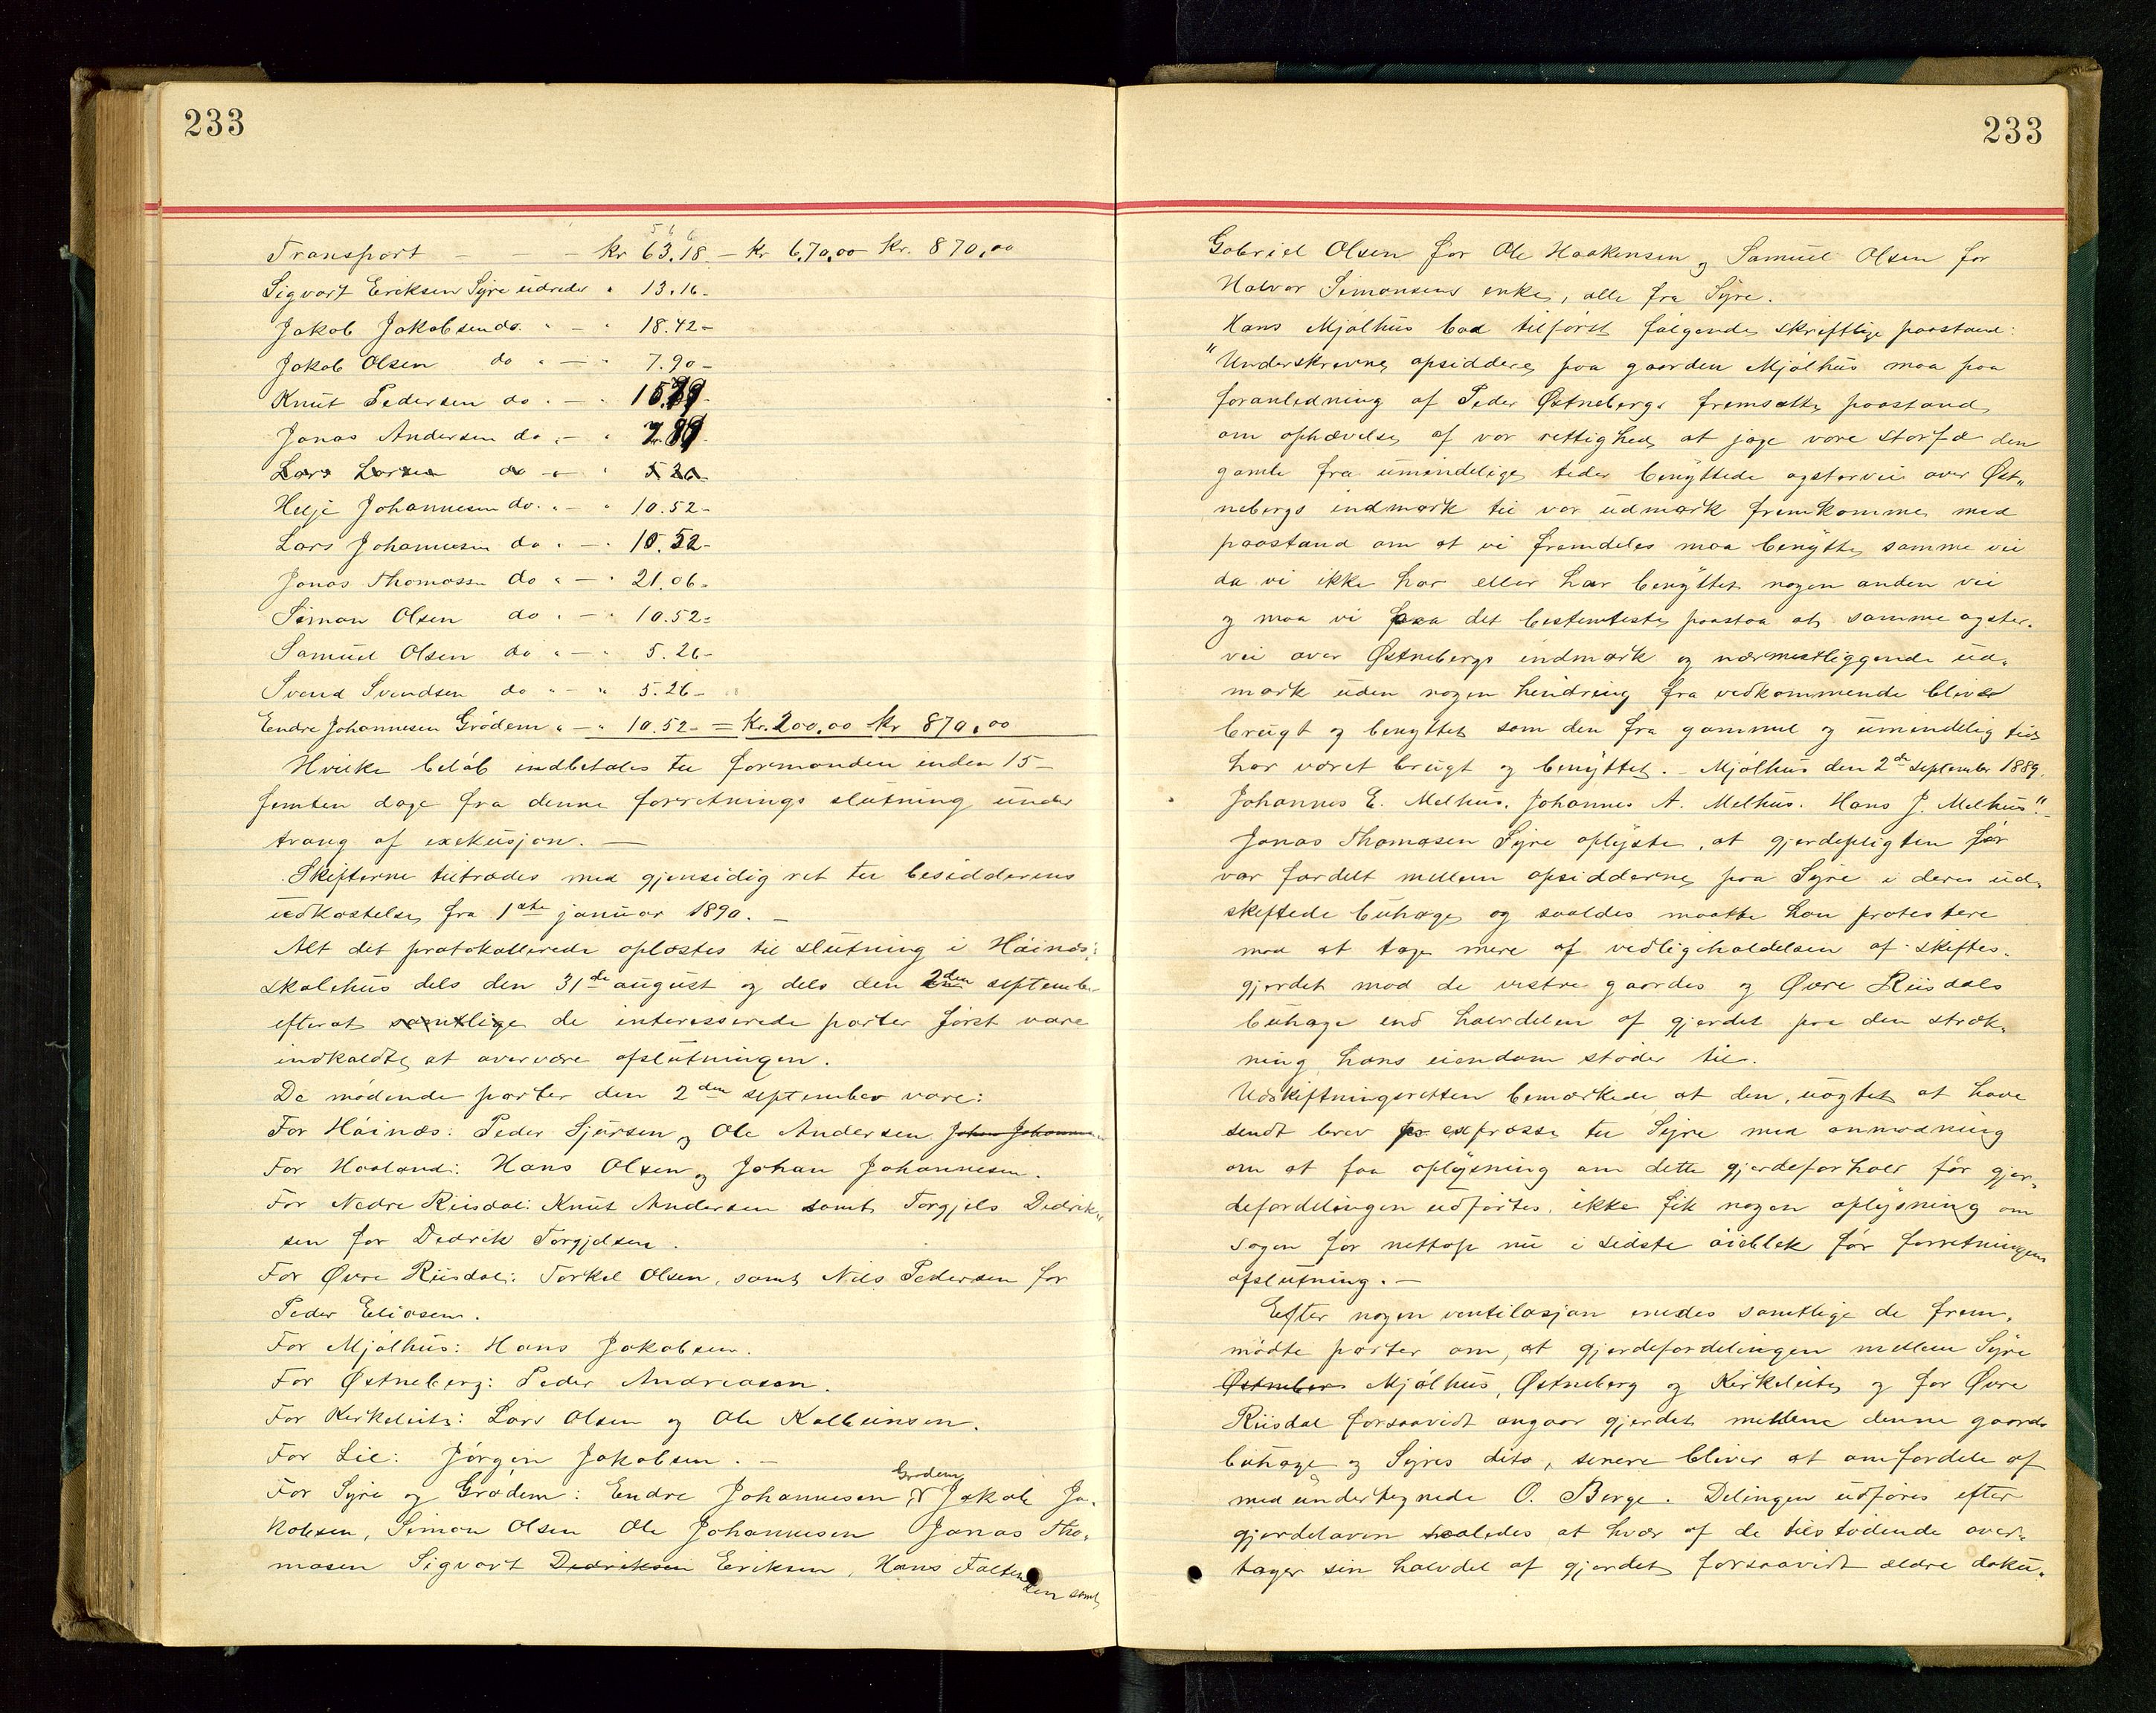 233
Transport - - - kr 63.18 - kr 670,00 kr. 870,00
Sigvart Eriksen Syre udreder " 13.16-
Jakob Jakobsen do. " - " 18.42-
Jakob Olsen do " - " 7.90-
Knut Pedersen do. - "
Jonas Andersen do. - "
Lars Larsen do - " 5 26-
Helje Johannesen do. " - " 10.52-
Lars Johannesen do . - . 10.52-
Jonas Thomassn do " - " 21.06-
Simon Olsen do . - . 10.52-
Samuel Olsen do " - " 5.26-
Svend Svendsen do " - " 5.26-
Endre Johannesen Grödem " - " 10.52- = Kr. 200,00 kr 870,00
Hvilke beløb indbetales til formanden inden 15-
femten dage fra denne forretnings slutning under
tvang af exekusjon. -
Skifterne tiltrædes med gjensidig ret til besiddernes
udkastelse fra 1ste januar 1890. -
Alt det protokollerede oplæstes til slutning i Höinæs
skolehus dels den 31de august og dels den 2den september
efterat samtlige de interesserede parter først vare
indkaldte at overvære afslutningen.
De mödende parter den 2den september vare:
For Höinæs: Peder Sjursen og Ole Andersen Johan Johannesen
For Haaland: Hans Olsen og Johan Johannesen.
For Nedre Riisdal: Knut Andersen samt Torgjels Didrik-
sen for Didrik Torgjelsen.
For Øvre Riisdal: Torkel Olsen, samt Nils Pedersen for
Peder Eliasen.
For Mjølhus: Hans Jakobsen.
For Østneberg: Peder Andreasen.
For Kirkeleite: Lars Olsen og Ole Kolbeinsen.
For Lie: Jörgen Jakobsen. -
For Syre og Grödem: Endre Johannesen Grödem, Jakob Ja-
kobsen, Simon Olsen Ole Johannesen Jonas Tho-
masen Sigvart Didriksen Eriksen, Hans Falten
sen samt
233
Gabriel Olsen for Ole Haakensen og Samuel Olsen for
Halvor Simonsens enke, alle fra Syre.
Hans Mjölhus bad tilförst fölgende skriftlige paastand:
"Underskrevne opsiddere paa gaarden Mjölhus maa paa
foranledning af Peder Østnebergs fremsatte paastand
om ophævelse af vor rettighed at jage vore storfæ den
gamle fra umindelige tider benyttede ogstervei over Øst-
nebergs indmark til vor udmark fremkomme med
paastand om at vi fremdeles maa benytte samme vei
da vi ikke har eller har benyttet nogen anden vei
og maa vi paa det bestemteste paastaa at samme ogster-
vei over Østnebergs indmark og nærmestliggende ud-
mark uden nogen hindring fra vedkommende bliver
brugt og benyttet som den fra gammel og umindelig tid
har været brugt og benyttet. - Mjölhus den 2de september 1889.
Johannes E. Melhus. Johannes A. Melhus. Hans J. Melhus".-
Jonas Thomasen Syre oplyste, at gjerdepligten för
var fordelt mellem opsidderne paa Syre i deres ud-
skiftede buhage og saaldes maatte han protestere
mod at tage mere af vedligeholdelsen af skiftes-
gjerdet mod de vestre gaardes og Øvre Riisdals
buhage end halvdelen af gjerdet paa den stræk-
ning hans eiendom stöder til.
Udskiftningsretten bemærkede at den, uagtet at have
sendt brev pr. expresse til Syre med anmodning
om at faa oplysning om dette gjerdeforhold för gjer-
defordelingen udførtes, ikke fik nogen oplysning om
sagen för nettop nu i sidste öieblik för forretningens
afslutning. -
Efter nogen ventilasjon enedes samtlige de frem-
mödte parter om, at gjerdefordelingen mellem Syre
Østneberg Mjölhus, Østneberg og Kirkeleite og for Øvre
Riisdal forsaavidt angaar gjerdet mellem denne gaards
buhage og Syres dito, senere bliver at omfordele af
med undertegnede O. Berge. Delingen udføres efter
gjerdeloven saaledes at hver af de tilstödende over-
tager sin halvdel af gjerdet forsaavidt ældre doku-